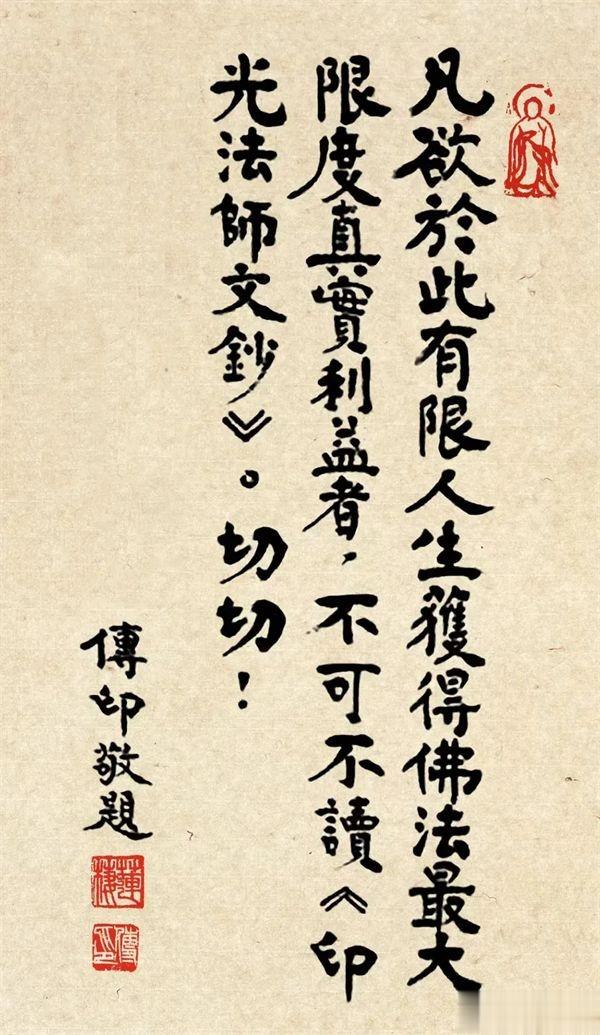 凡欲於此有限人生獲得佛法最大
限度真實利益者，不可不讀《印
光法師文鈔》。切切！
傳印敬題
傳印